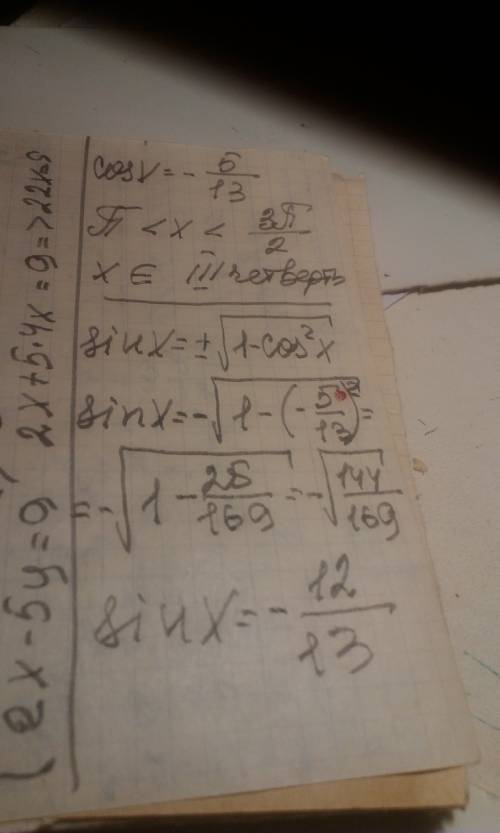 cosx = - 5/13
π < x < 3π/2
x ∈ III четверть
sinx = ± √(1-cos²x)
sinx = - √(1 - (-5/13)²) =
= - √(1 - 25/169) = - √(144/169)
sinx = - 12/13
{ 2x - 5y = 9
2x + 5·4x = 9 => 22x=9